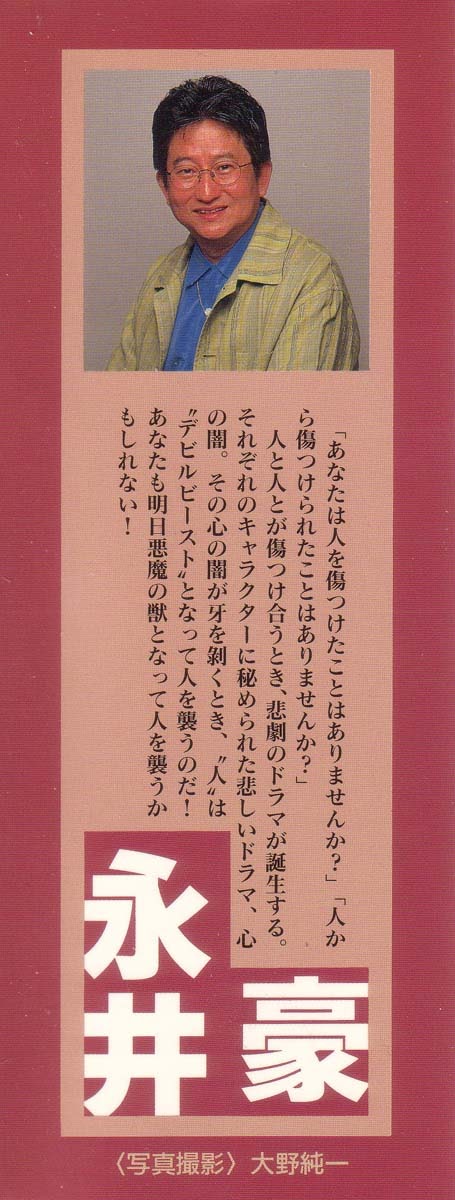 「あなたは人を傷つけたことはありませんか?」「人か
ら傷つけられたことはありませんか?」
人と人とが傷つけ合うとき、悲劇のドラマが誕生する。
それぞれのキャラクターに秘められた悲しいドラマ、心
の闇。その心の闇が牙を剝くとき、〝人〟は
〝デビルビースト〟となって人を襲うのだ!
あなたも明日悪魔の獣となって人を襲うか
もしれない!
永井
豪
〈写真撮影〉大野純一